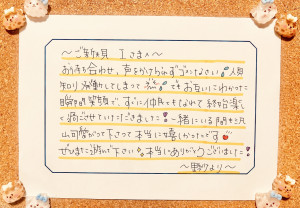 ～ご新規 Iさまへ～
お待ち合わせ、声をかけられずごめんなさい 人見
知り 発動してしまって でもお互いにわかった
瞬間笑顔で、すぐに仲良くもなれて 終始楽し
く過ごさせていただきました 一緒にいる間も沢
山可愛がって下さって本当に嬉しかったです
ぜひまた遊んで下さい 本当にありがとうございました!
～野紗より～